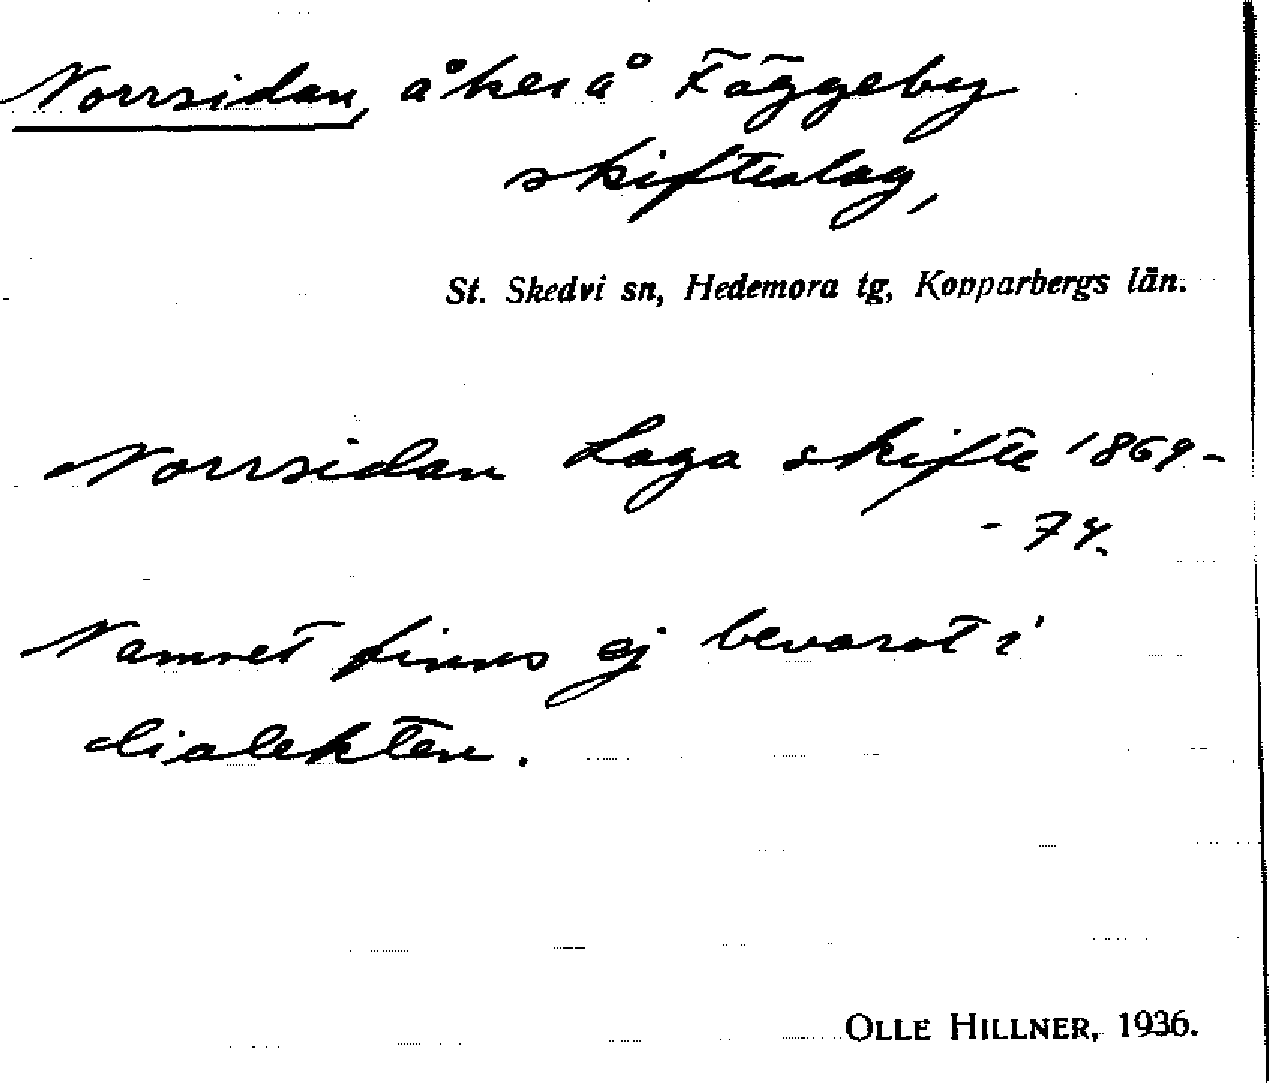 Norrsidan, åker å Fäggeby
skifteslag,
St. Skedvi sn, Hedemora tg, Kopparbergs län.
Norrsidan Laga skifte 1869-
- 74.
Namnet finns ej bevarat i
dialekten.
OLLE HILLNER, 1936.